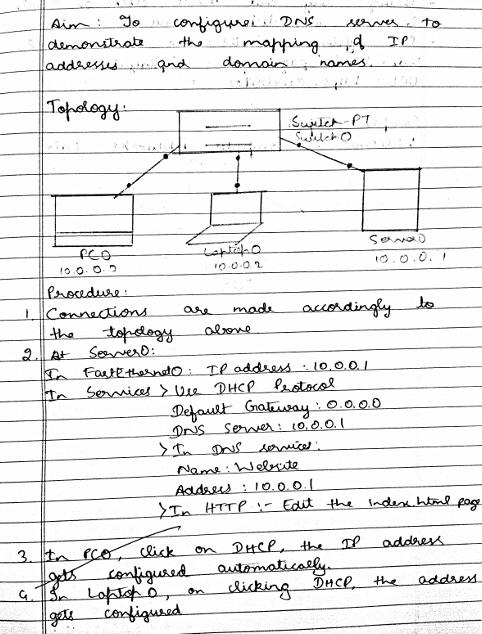 Aim: To configure DNS server to
demonstrate the mapping of IP
addresses and domain names.
Topology:
Switch-PT
Switch0
PC0
Laptop0
Server0
10.0.0.2
10.0.0.1
Procedure:
1. Connections are made accordingly to
the topology above
2. At Server0:
In FastEthernet0: IP address: 10.0.0.1
In Services > Use DHCP Protocol
Default Gateway: 0.0.0.0
DNS Server: 10.0.0.1
> In DNS services:
Name: Website
Address: 10.0.0.1
> In HTTP :- Edit the index.html page
3. In PC0, Click on DHCP, the IP address
gets configured automatically.
4. In Laptop0, on clicking DHCP, the address
gets configured